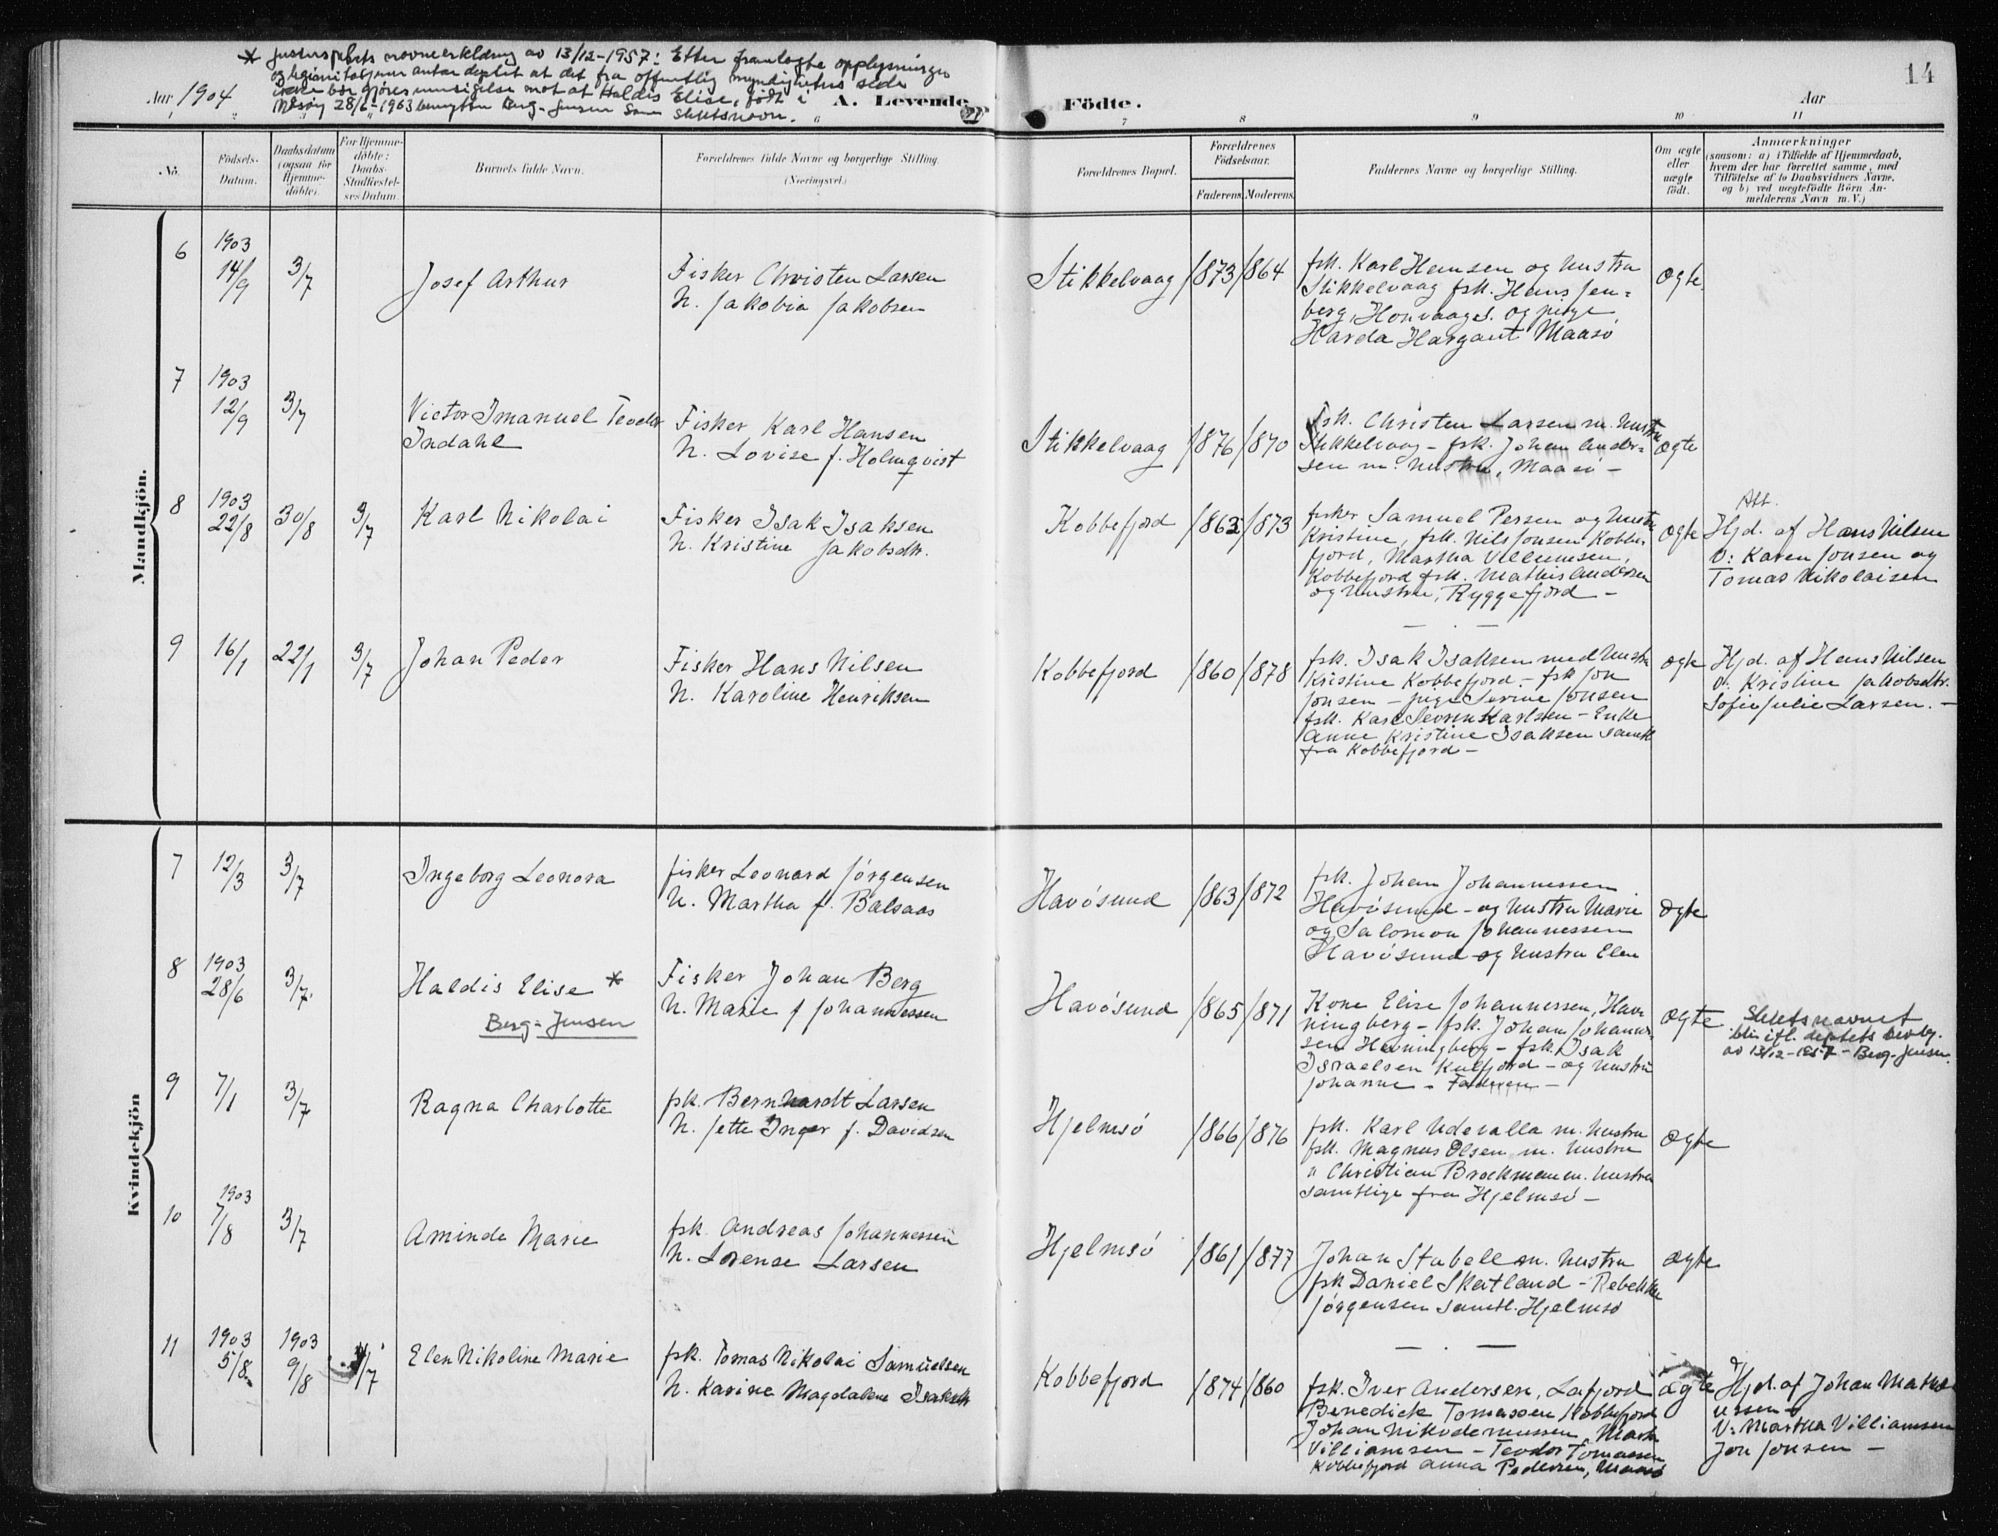 * Justisdepts navneerklæring av 13/12-1957: Etter framlagte opplysninger
og legimitasjoner antar deptet at det fra offentlig myndighets side
ikke bør gjøres innsigelse mot at Haldis Elise, født i
Måsøy 28/6-1903 benytter Berg-Jensen som slektsnavn.
14
Aar 1904
A. Levende Födte.
Aar
6 7 8 9 10 11
No.
Födsels-
Datum.
Daabsdatum
(ogsaa for
Hjemme-
döbte).
For Hjemme-
döbte:
Daabs-
Stadfæstel-
ses Datum.
Barnets fulde Navn.
Forældrenes fulde Navne og borgerlige Stilling.
(Næringsvei.)
Forældrenes Bopæl.
Forældrenes
Födselsaar.
Faderens Moderens
Faddernes Navne og borgerlige Stilling.
Om ægte
eller
uægte
födt.
Anmærkninger
(saasom: a) i Tilfælde af Hjemmedaab,
hvem der har forrettet samme, med
Tilföielse af to Daabsvidners Navne,
og b) ved uægtefödte Börn An-
melderens Navn m. V.)
Mandkjön.
6
1903
14/9
3/7
Josef Arthur
Fisker Christen Larsen
H. Jakobia Jakobsen
Stikkelvaag
1873
1864
fsk. Karl Hansen og hustru
Stikkelvaag fsk. Hans Jen-
berg, Honvaages. og pige
Harda Hargaut Maasö
ægte.
7
1903
12/9
3/7
Victor Imanuel Teodor
Indahl
Fisker Karl Hansen
H. Lovise f. Holmqvist
Stikkelvaag
1876
1870
Fsk. Christen Larsen m. hustru
Stikkelvaag - fsk. Johan Ander-
sen m. hustru, Maasö -
ægte
8
1903
22/8
30/8
3/7
Karl Nikolai
Fisker Isak Isaksen
H. Kristine Jakobsdtr.
Kobbefjord
1863
1873
fisker Samuel Persen og hustru
Kristine, fsk. Nils Jonsen Kobbe-
fjord, Martha Villumsen,
Kobbefjord fsk. Mathis Andersen
og hustru, Ryggefjord -
ægte
Att.
Hjd. af Hans Nilsen
V: Karen Jonsen og
Tomas Nikolaisen
9
16/1
22/1
3/7
Johan Peder
Fisker Hans Nilsen
H. Karoline Henriksen
Kobbefjord
1860
1878
fsk. Isak Isaksen med hustru
Kristine Kobbefjord - fsk Jon
Jonsen - pige Serine Jonsen
fsk. Karl Sevrin Karlsen - Enke
Anne Kristine Isaksen samtl.
fra Kobbefjord -
ægte
Hjd. af Hans Nilsen
V: Kristine Jakobsdtr.
Sofie Julie Larsen. -
Kvindekjön
7
12/3
3/7
Ingeborg Leonora
fisker Leonard Jørgensen
H. Martha f. Balsaas
Havösund
1863
1872
fsk. Johan Johannessen
Havösund - og hustru Marie
og Salomon Johannessen
Havösund og hustru Elen
ægte
8
1903
28/6
3/7.
Haldis Elise *
Berg-Jensen
Fisker Johan Berg
H. Marie f Johannessen
Havösund
1865
1871
Kone Elise Johannessen, Hav-
ningberg - fsk. Johan Johannes-
sen Havningberg - fsk. Isak
Israelsen Kulfjord - og hustru
Johanne - Faderen -
ægte
Slektsnavnet
blir ifl. deptets bevilg.
av 13/12-1957 - Berg-Jensen.
9
7/1
3/7
Ragna Charlotte
fsk. Bernhardt Larsen
H. Jette Inger f. Davidsen
Hjelmsö
1866
1876
fsk. Karl Udevalla m. hustru
fsk. Magnus Olsen m. hustru
" Christian Brockmann m. hustru
samtlige fra Hjelmsö -
ægte
10
1903
7/8
3/7
Aminde Marie
fsk. Andreas Johannessen
H. Lorense Larsen
Hjelmsö
1861
1877
Johan Stabell m. hustru
fsk Daniel Skatland - Rebekke
Jörgensen samtl. Hjelmsö
ægte
11
1903
5/8
1903
9/8
3/7
Elen Nikoline Marie
fsk. Tomas Nikolai Samuelsen
H. Karine Magdalene Isaksdt.
Kobbefjord
1874
1860
fsk. Iver Andersen, Lafjord
Benedick Tomassen Kobbefjord
Johan Nikodemussen, Marth
Villiamsen - Teodor Tomassen
Kobbefjord Anna Pedersen, Maasö
ægte
Hjd. af Johan Mathi-
ussen
V: Martha Villiamsen
Jon Jonsen -